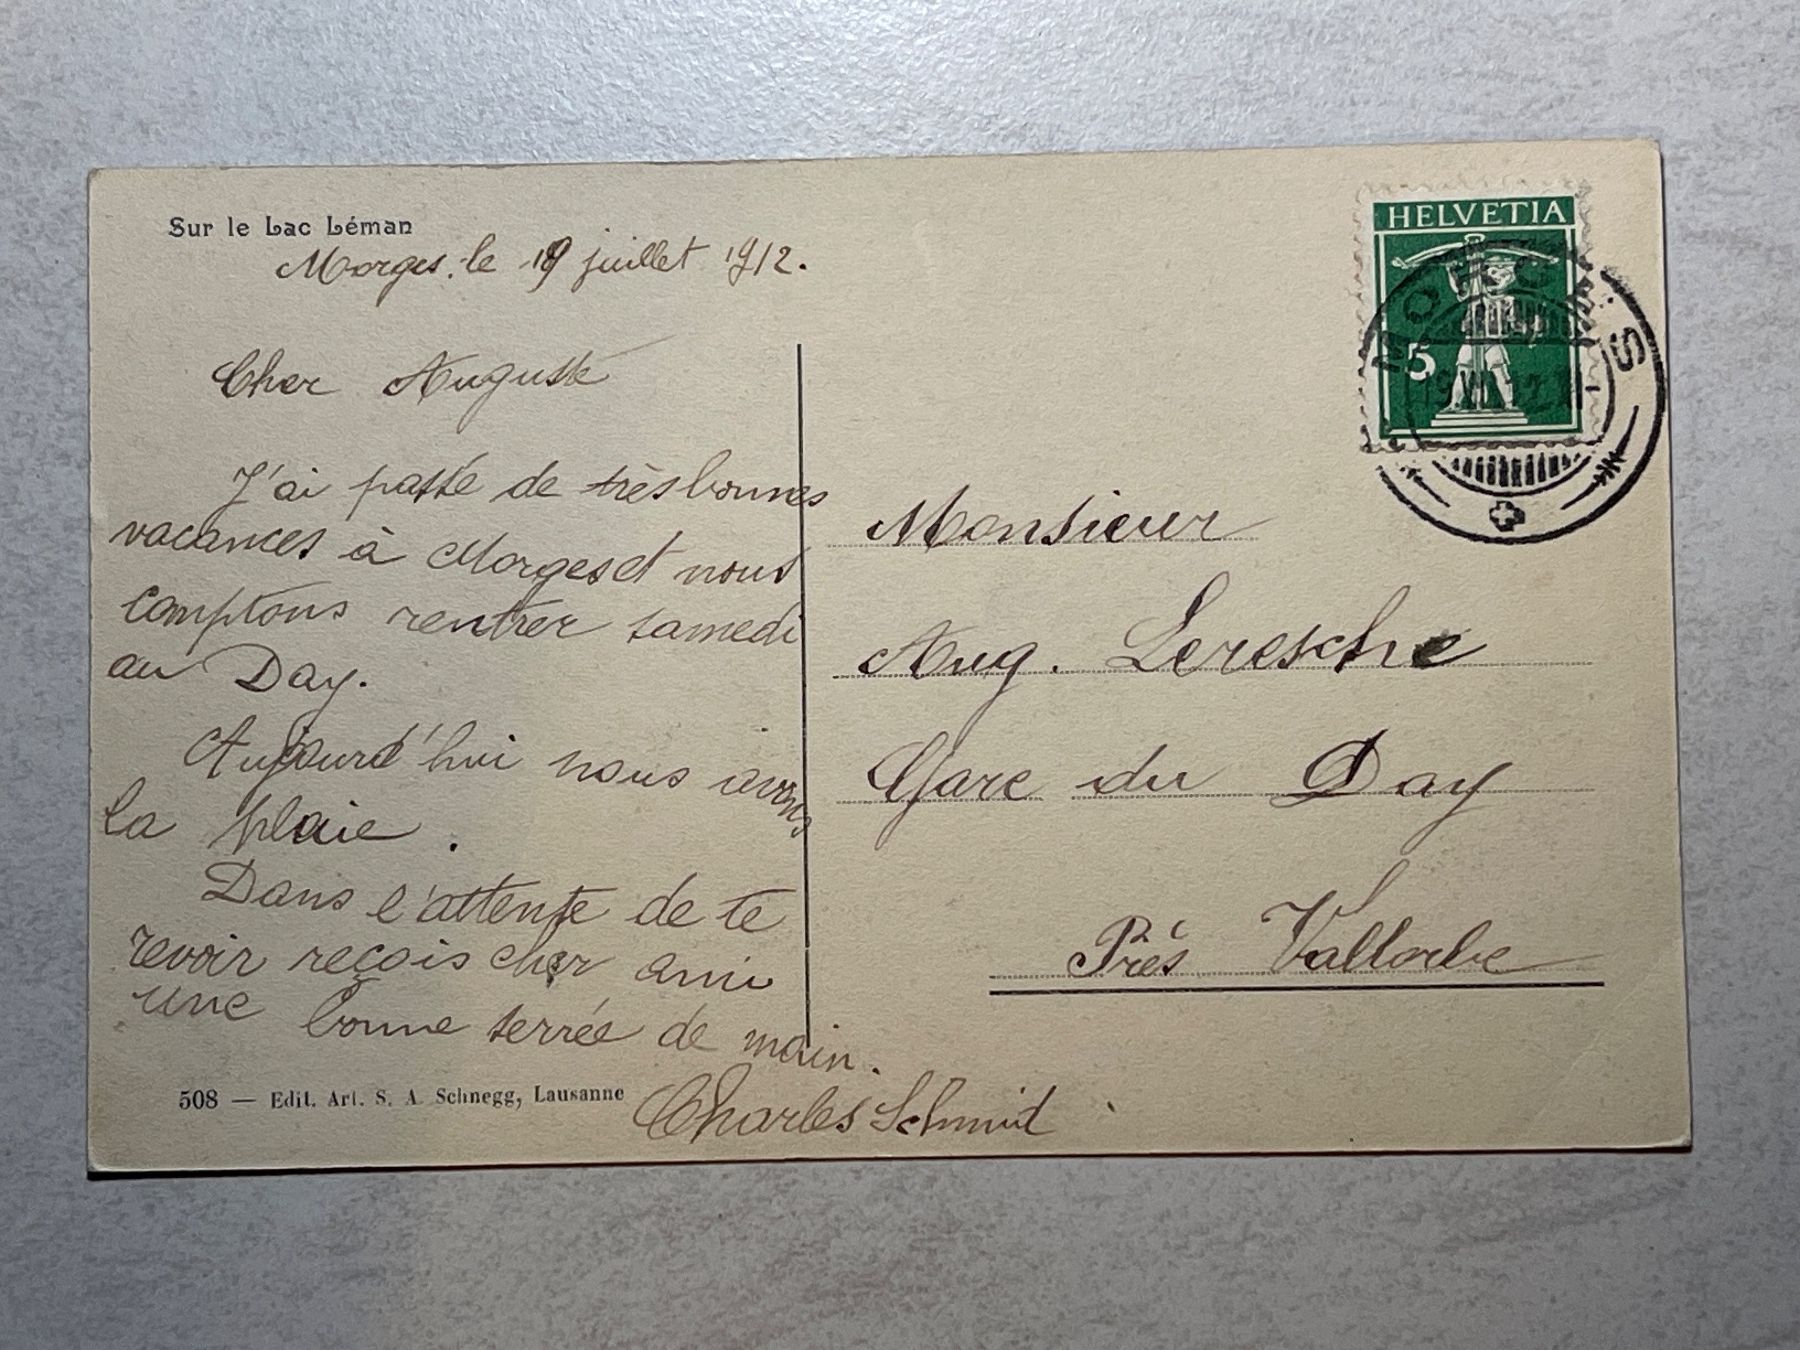 Sur le Lac Léman
Morges, le 19 juillet 1912.
Cher Auguste
J'ai passé de très bonnes
vacances à Morges et nous
comptons rentrer samedi
au Day.
Aujourd'hui nous avons
la plaie.
Dans l'attente de te
revoir reçois cher ami
une bonne serrée de main.
Charles Schmid
508 — Edit. Art. S. A. Schnegg, Lausanne
HELVETIA
5
MORGES
19.VII.12.
Monsieur
Aug. Leresche
Gare du Day
Prés Vallorbe